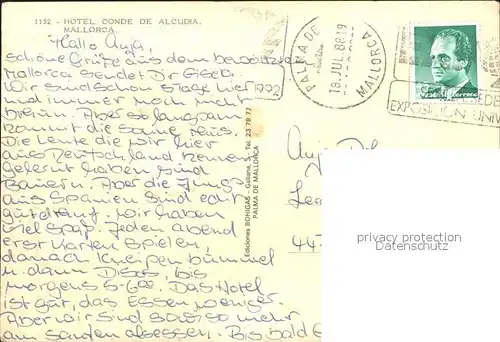 1152 - HOTEL CONDE DE ALCUDIA.
MALLORCA.
Hallo Anja,
schöne Grüße aus dem
Mallorca sendet Dir Gisela.
Wir sind schon 5 Tage hier
und immer noch nicht
braun. Aber so langsam
kommt die Sonne raus.
Die Leute die wir hier
aus Deutschland kennen
gelernt haben sind
Bauern. Aber die Jungs
aus Spanien sind echt
gut drauf. Wir haben
viel Spaß. Jeden abend
erst Karten spielen,
danach Kneipenbummel
u. dann Disco, bis
morgens 5-6 00. Das Hotel
ist gut, das Essen weniger.
Aber wir sind sowieso mehr
am saufen als essen. Bis bald G
Ediciones BOHIGAS - Galiana, 5 - Tel. 23 78 77
PALMA DE MALLORCA
1992
PALMA DE
MALLORCA
18 JUL 88 19
correos
EXPOSICION UNIV
44
privacy protection